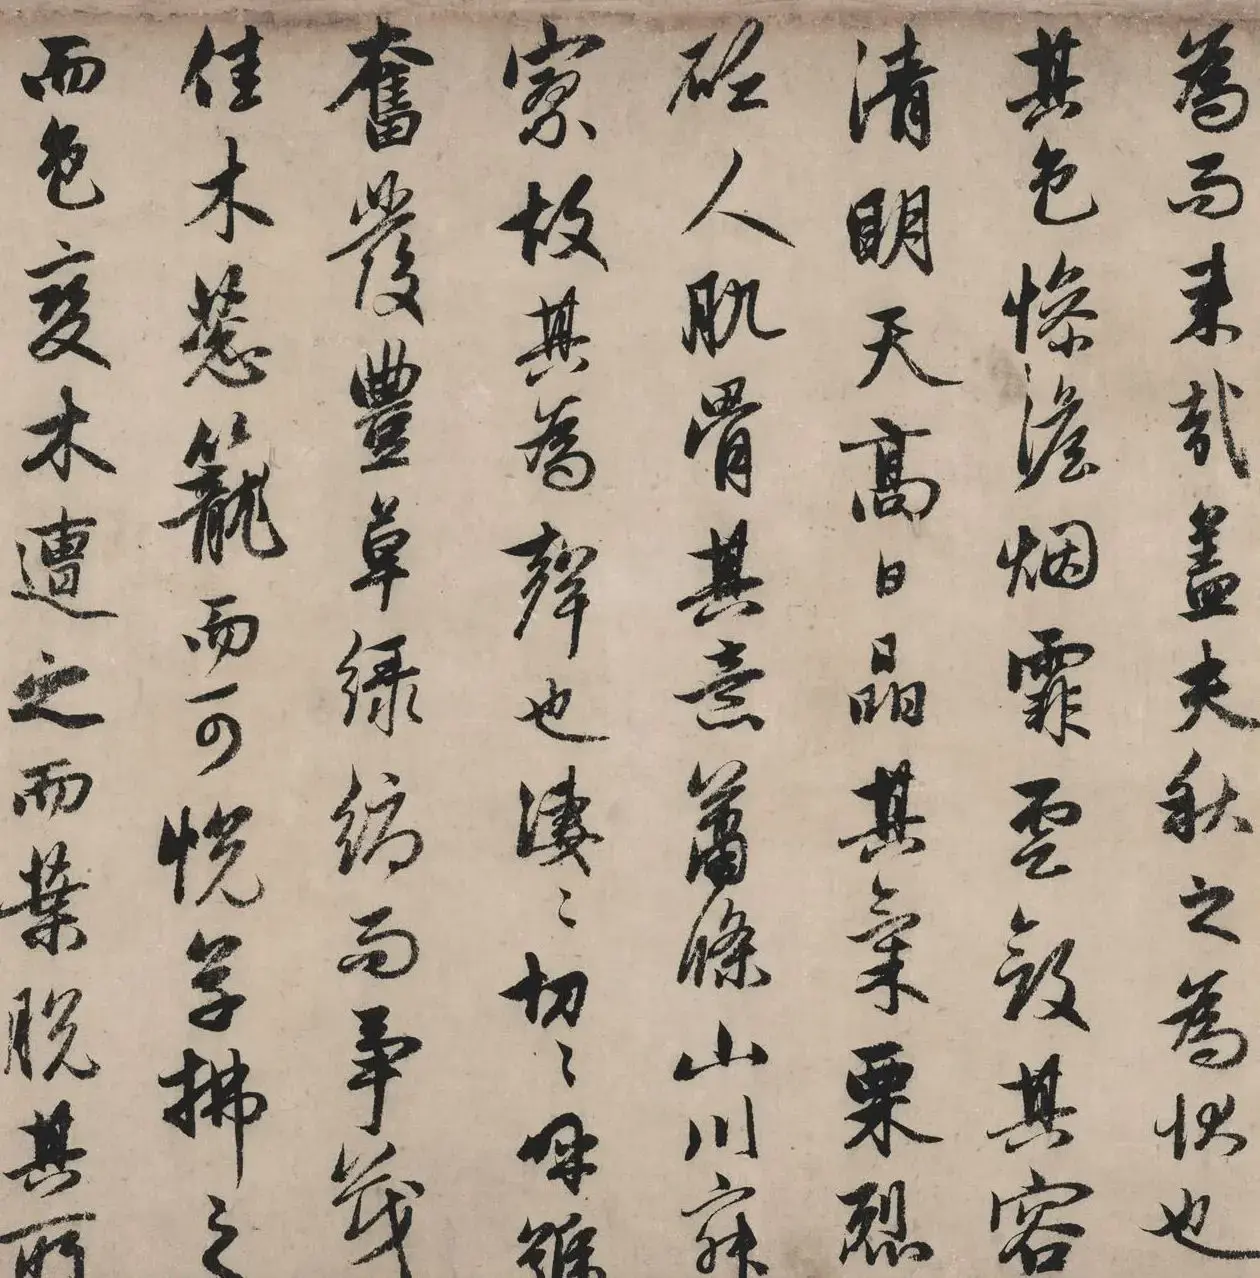 為而来哉蓋夫秋之為状也
其色慘澹烟霏雲斂其容
清明天高日晶其氣栗烈
砭人肌骨其意蕭條山川寂
寥故其為聲也淒〻切〻呼號
奮發豐草緑縟而爭茂
佳木葱籠而可悅草拂之
而色變木遭之而葉脫其所